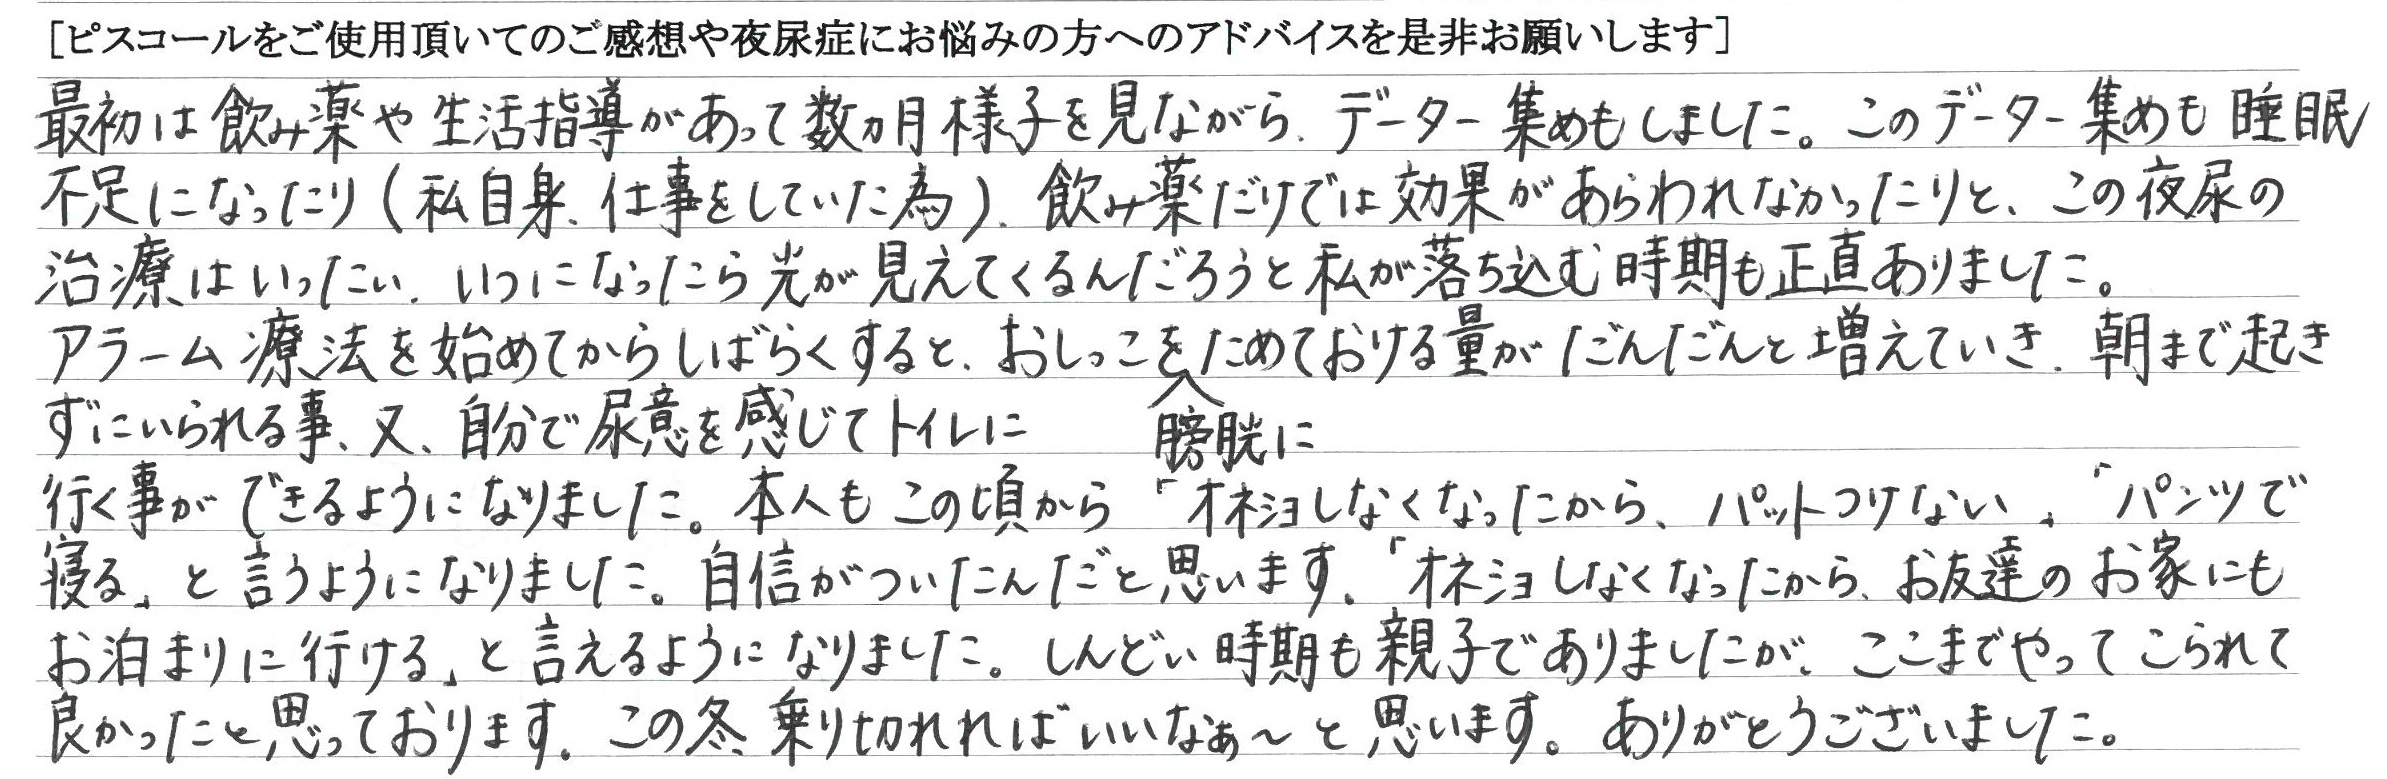 [ピスコールをご使用頂いてのご感想や夜尿症にお悩みの方へのアドバイスを是非お願いします]
最初は飲み薬や生活指導があって数ヵ月様子を見ながら、データー集めもしました。このデーター集めも睡眠
不足になったり(私自身、仕事をしていた為)、飲み薬だけでは効果があらわれなかったりと、この夜尿の
治療はいったい、いつになったら光が見えてくるんだろうと私が落ち込む時期も正直ありました。
アラーム療法を始めてからしばらくすると、おしっこをためておける量がだんだんと増えていき、朝まで起き
ずにいられる事、又、自分で尿意を感じてトイレに 膀胱に
行く事ができるようになりました。本人もこの頃から「オネショしなくなったから、パットつけない」「パンツで
寝る」と言うようになりました。自信がついたんだと思います。「オネショしなくなったから、お友達のお家にも
お泊まりに行ける」と言えるようになりました。しんどい時期も親子でありましたが、ここまでやってこられて
良かったと思っております。この冬、乗り切れればいいなぁ~と思います。ありがとうございました。